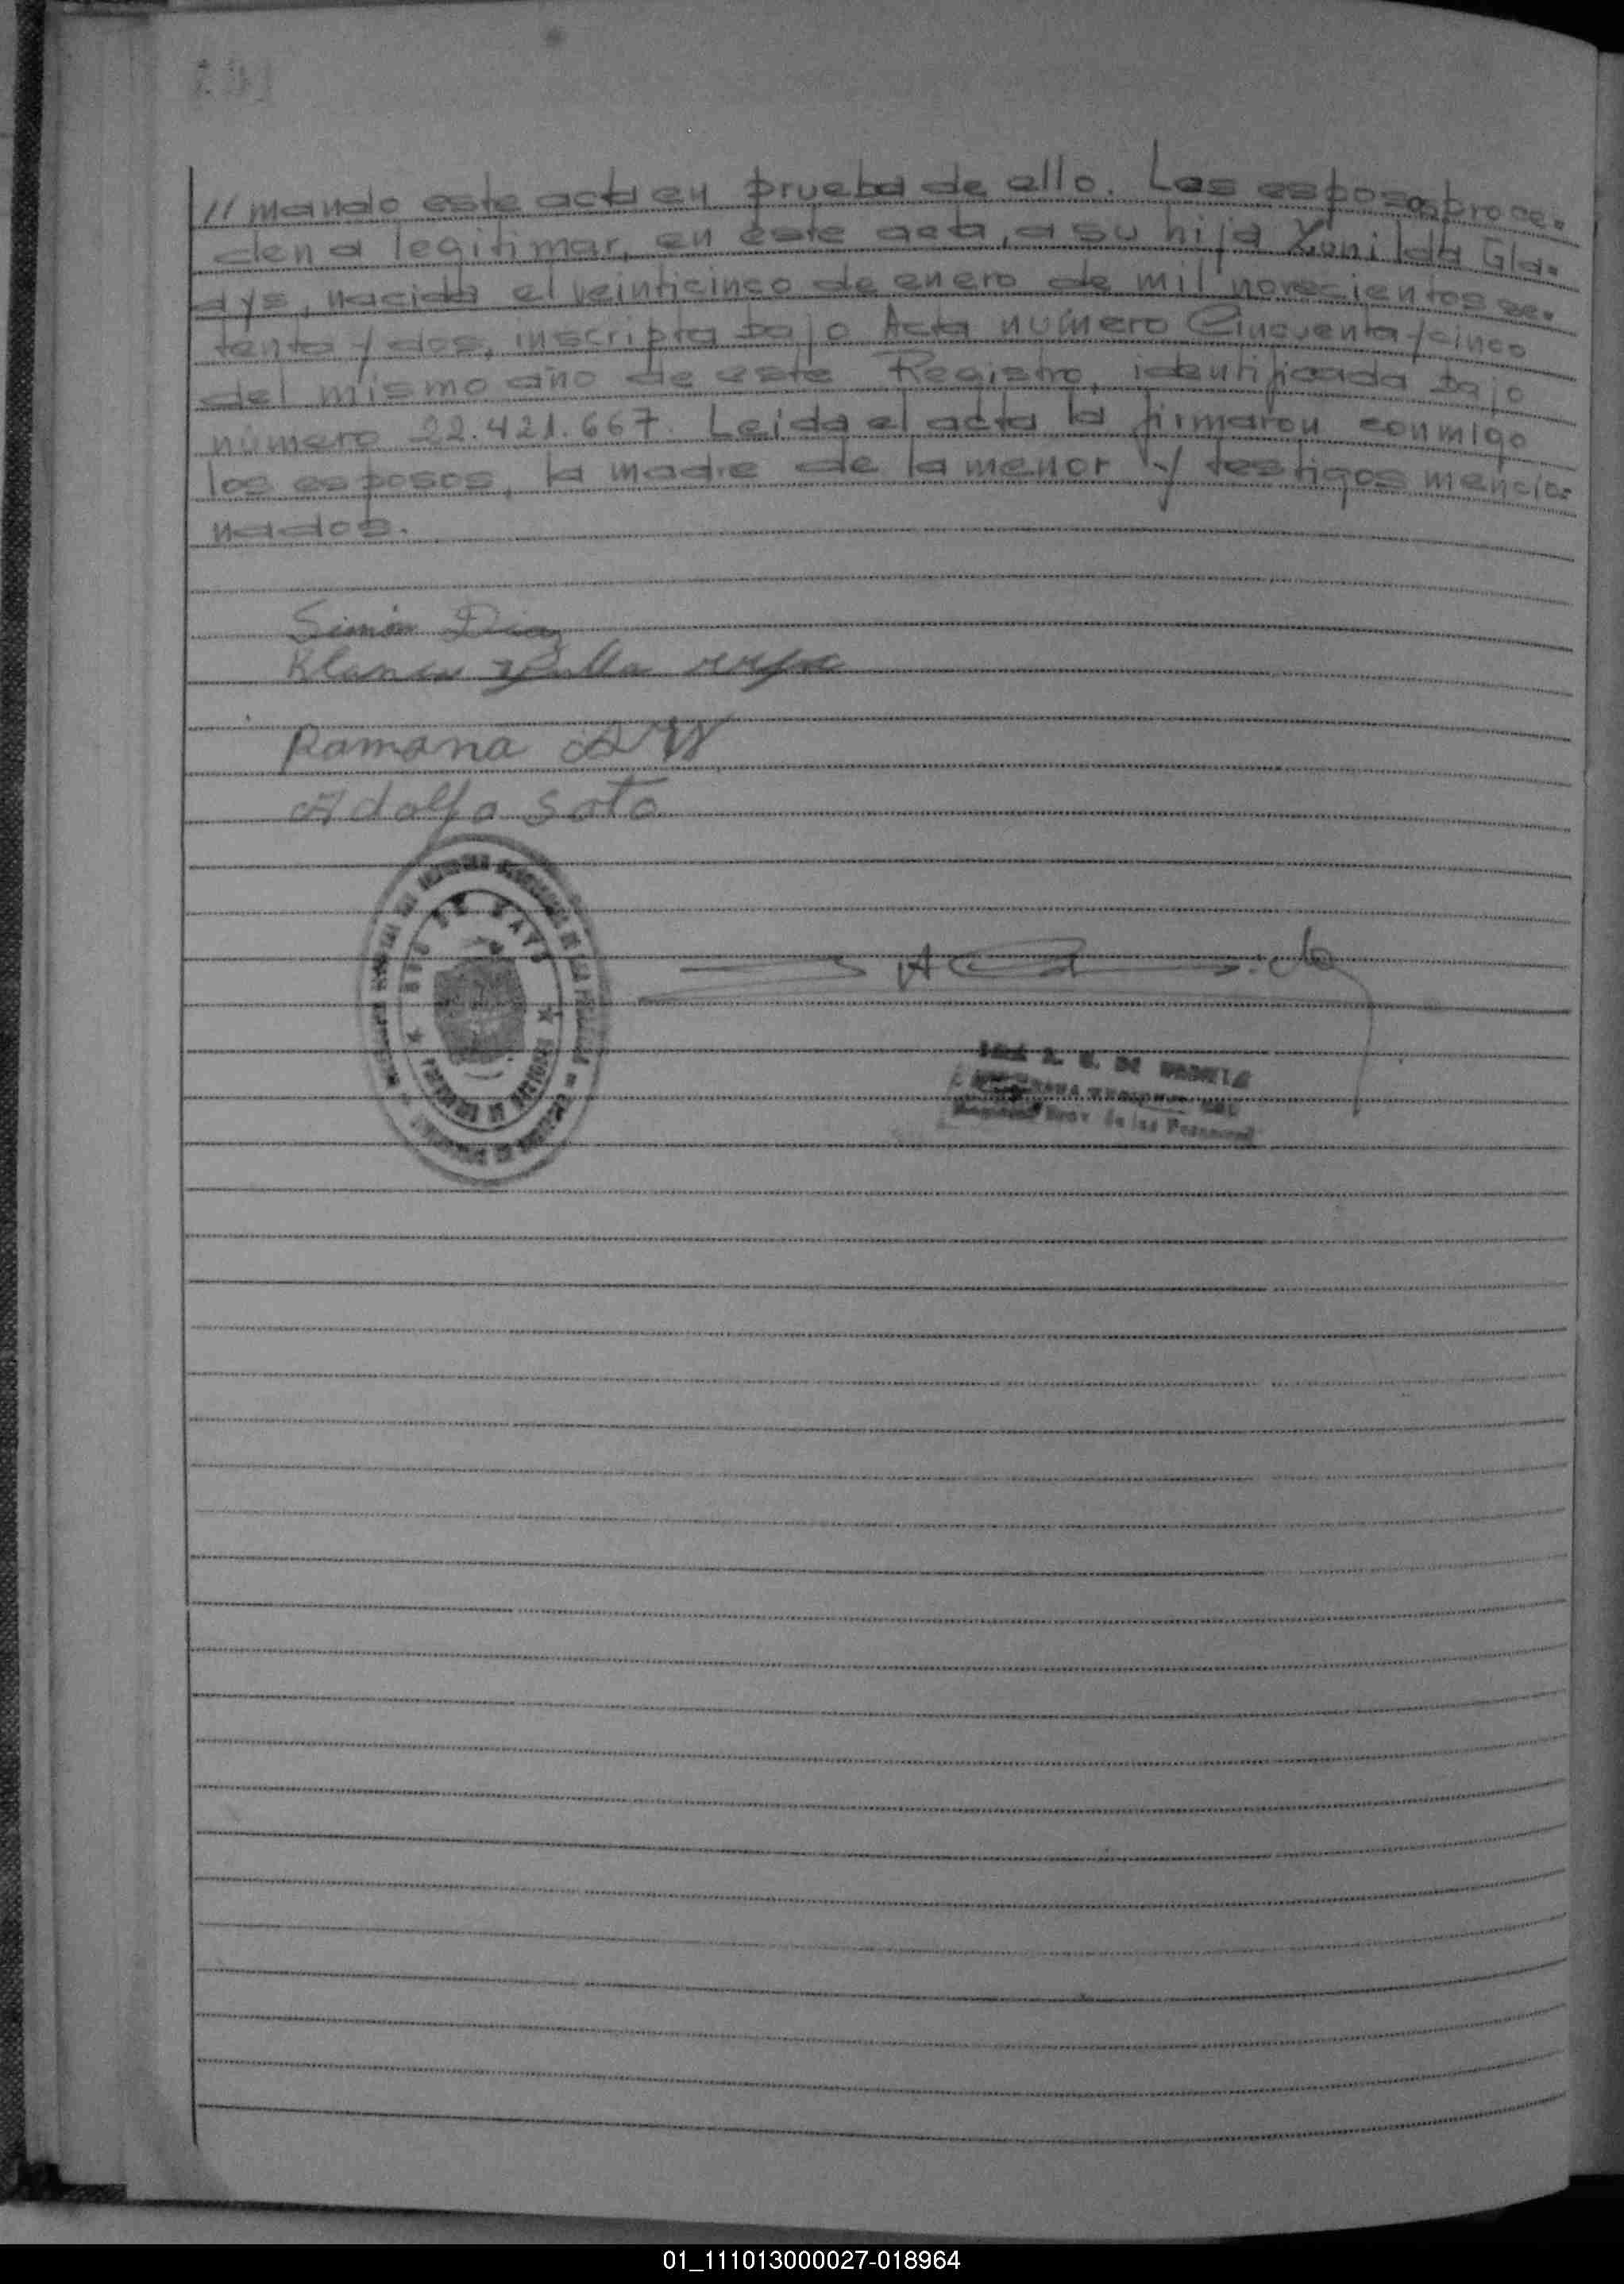 // mando este acta en prueba de ello. Los esposos proce-
den a legitimar, en este acta, a su hija Zunilda Gla-
dys, nacida el veinticinco de enero de mil novecientos se-
tenta y dos, inscripta bajo Acta número Cincuenta y cinco
del mismo año de este Registro, identificada bajo
número 22.421.667. Leida el acta la firmaron conmigo
los esposos, la madre de la menor y testigos mencio-
nados.
Simón Diaz
Ramona
Adolfo Soto
DE
de las Personas
01_111013000027-018964